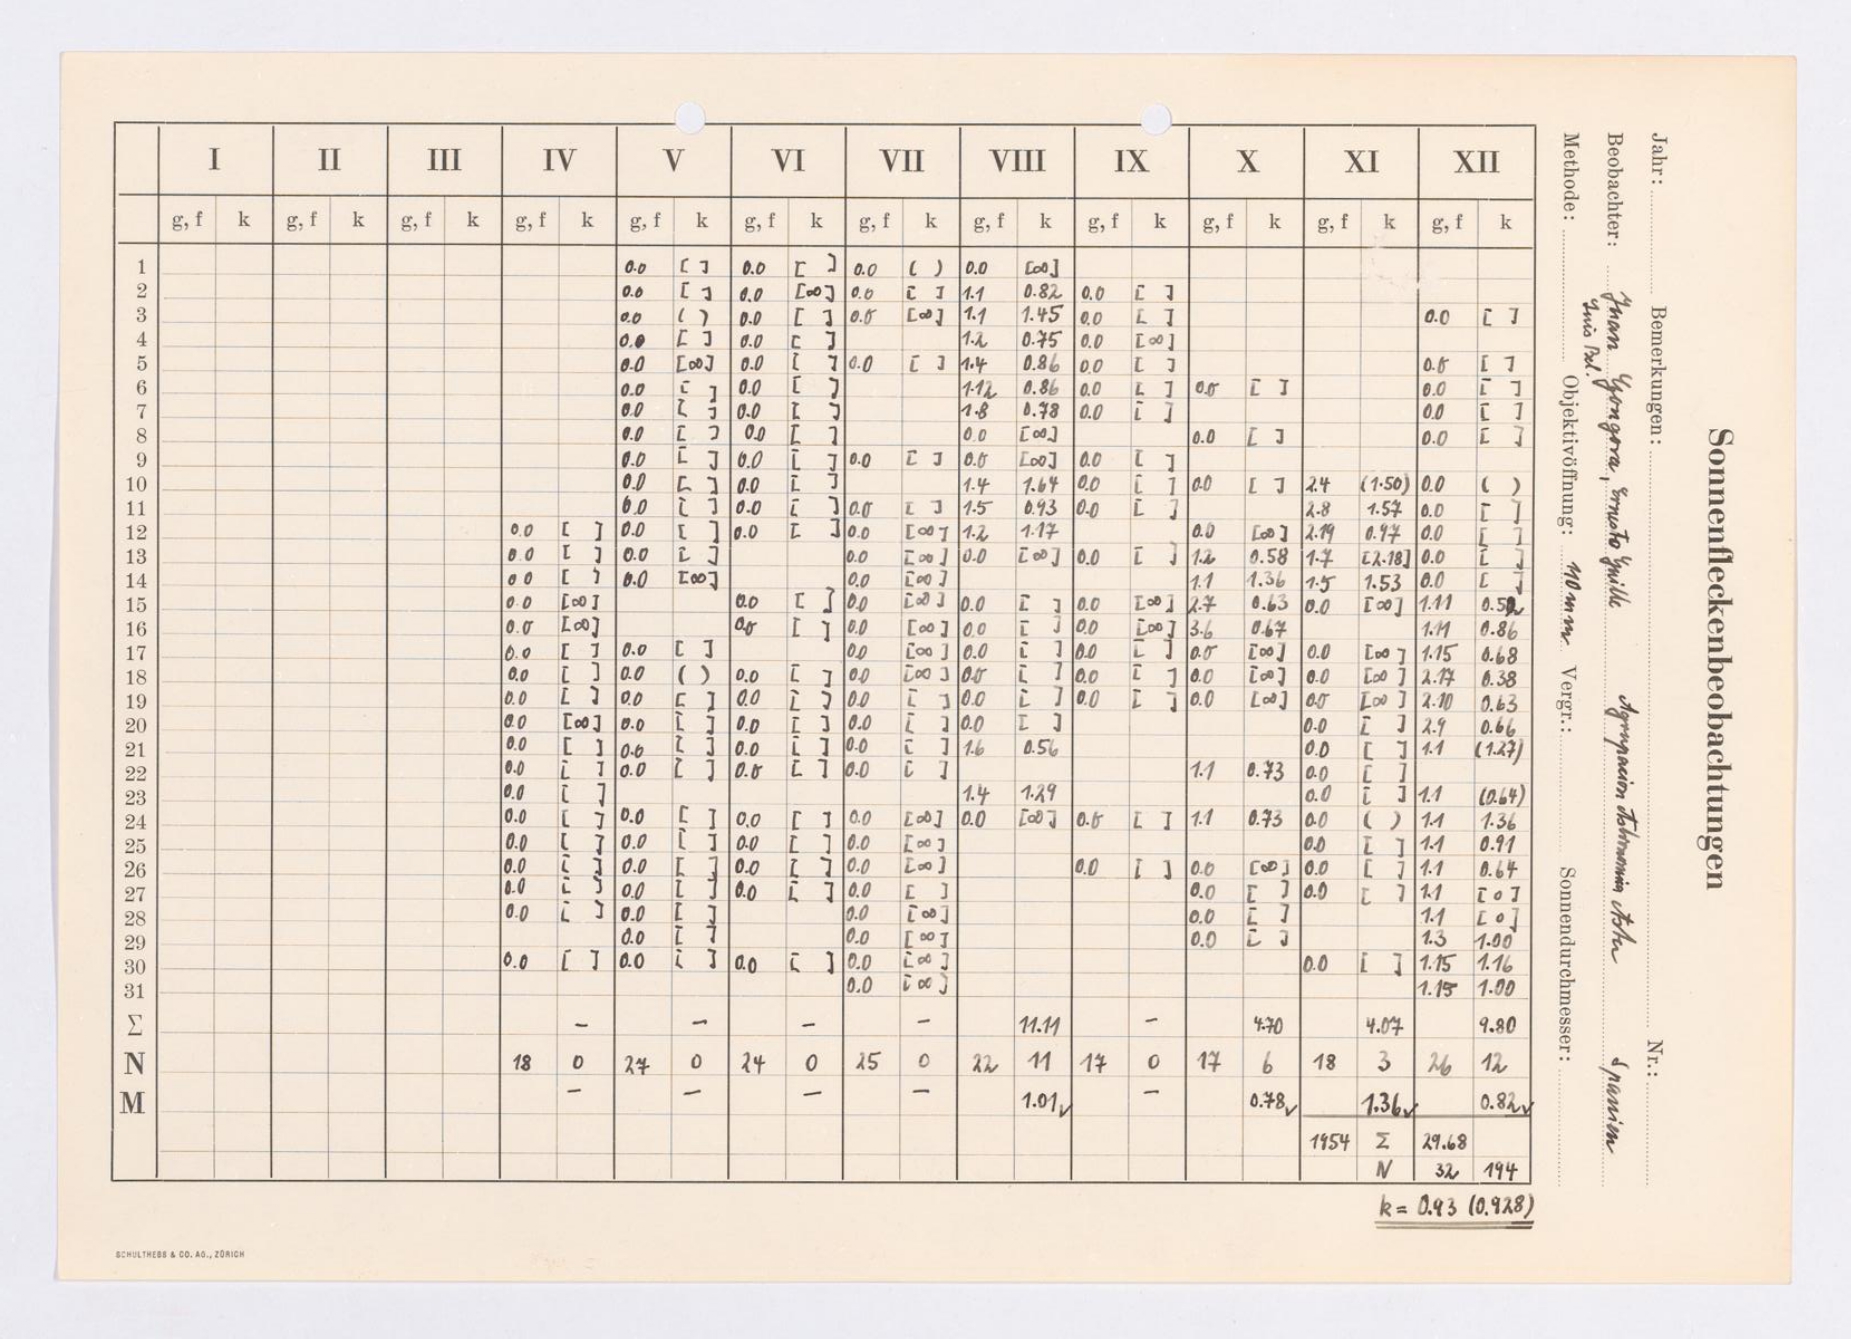 Sonnenfleckenbeobachtungen
Jahr: Bemerkungen: Nr.:
Beobachter: Juan Gongora, Ernesto Guille Agrupacion Astronomica Aster Spanien
Luis Pal.
Methode: Objektivöffnung: 110 mm Vergr.: Sonnendurchmesser:
I II III IV V VI VII VIII IX X XI XII
g, f k g, f k g, f k g, f k g, f k g, f k g, f k g, f k g, f k g, f k g, f k g, f k
1 0.0 [ ] 0.0 [ ] 0.0 ( ) 0.0 [∞]
2 0.0 [ ] 0.0 [∞] 0.0 [ ] 1.1 0.82 0.0 [ ]
3 0.0 ( ) 0.0 [ ] 0.0 [∞] 1.1 1.45 0.0 [ ] 0.0 [ ]
4 0.0 [ ] 0.0 [ ] 1.2 0.75 0.0 [∞]
5 0.0 [∞] 0.0 [ ] 0.0 [ ] 1.4 0.86 0.0 [ ] 0.0 [ ]
6 0.0 [ ] 0.0 [ ] 1.12 0.86 0.0 [ ] 0.0 [ ] 0.0 [ ]
7 0.0 [ ] 0.0 [ ] 1.8 0.78 0.0 [ ] 0.0 [ ]
8 0.0 [ ] 0.0 [ ] 0.0 [∞] 0.0 [ ] 0.0 [ ]
9 0.0 [ ] 0.0 [ ] 0.0 [ ] 0.0 [∞] 0.0 [ ]
10 0.0 [ ] 0.0 [ ] 1.4 1.64 0.0 [ ] 0.0 [ ] 2.4 (1.50) 0.0 ( )
11 0.0 [ ] 0.0 [ ] 0.0 [ ] 1.5 0.93 0.0 [ ] 2.8 1.57 0.0 [ ]
12 0.0 [ ] 0.0 [ ] 0.0 [ ] 0.0 [∞] 1.2 1.17 0.0 [∞] 2.19 0.97 0.0 [ ]
13 0.0 [ ] 0.0 [ ] 0.0 [∞] 0.0 [∞] 0.0 [ ] 1.2 0.58 1.7 [2.18] 0.0 [ ]
14 0.0 [ ] 0.0 [∞] 0.0 [∞] 1.1 1.36 1.5 1.53 0.0 [ ]
15 0.0 [∞] 0.0 [ ] 0.0 [∞] 0.0 [ ] 0.0 [∞] 2.7 0.63 0.0 [∞] 1.11
16 0.0 [∞] 0.0 [ ] 0.0 [∞] 0.0 [ ] 0.0 [∞] 3.6 0.67 1.11 0.86
17 0.0 [ ] 0.0 [ ] 0.0 [∞] 0.0 [ ] 0.0 [ ] 0.0 [∞] 0.0 [∞] 1.15 0.68
18 0.0 [ ] 0.0 ( ) 0.0 [ ] 0.0 [∞] 0.0 [ ] 0.0 [ ] 0.0 [∞] 0.0 [∞] 2.17 0.38
19 0.0 [ ] 0.0 [ ] 0.0 [ ] 0.0 [ ] 0.0 [ ] 0.0 [ ] 0.0 [∞] 0.0 [∞] 2.10 0.63
20 0.0 [∞] 0.0 [ ] 0.0 [ ] 0.0 [ ] 0.0 [ ] 0.0 [ ] 2.9 0.66
21 0.0 [ ] 0.0 [ ] 0.0 [ ] 0.0 [ ] 1.6 0.56 0.0 [ ] 1.1 (1.27)
22 0.0 [ ] 0.0 [ ] 0.0 [ ] 0.0 [ ] 1.1 0.73 0.0 [ ]
23 0.0 [ ] 1.4 1.29 0.0 [ ] 1.1 (0.64)
24 0.0 [ ] 0.0 [ ] 0.0 [ ] 0.0 [∞] 0.0 [∞] 0.0 [ ] 1.1 0.73 0.0 ( ) 1.1 1.36
25 0.0 [ ] 0.0 [ ] 0.0 [ ] 0.0 [∞] 0.0 [ ] 1.1 0.91
26 0.0 [ ] 0.0 [ ] 0.0 [ ] 0.0 [∞] 0.0 [ ] 0.0 [∞] 0.0 [ ] 1.1 0.64
27 0.0 [ ] 0.0 [ ] 0.0 [ ] 0.0 [ ] 0.0 [ ] 0.0 [ ] 1.1 [0]
28 0.0 [ ] 0.0 [ ] 0.0 [∞] 0.0 [ ] 1.1 [0]
29 0.0 [ ] 0.0 [∞] 0.0 [ ] 1.3 1.00
30 0.0 [ ] 0.0 [ ] 0.0 [ ] 0.0 [∞] 0.0 [ ] 1.15 1.16
31 0.0 [∞] 1.15 1.00
Σ – – – – 11.11 – 4.70 4.07 9.80
N 18 0 27 0 24 0 25 0 22 11 17 0 17 6 18 3 26 12
M – – – – 1.01✓ – 0.78✓ 1.36✓ 0.82✓
1954 Σ 29.68
N 32 194
k = 0.93 (0.928)
SCHULTHESS & CO. AG., ZÜRICH